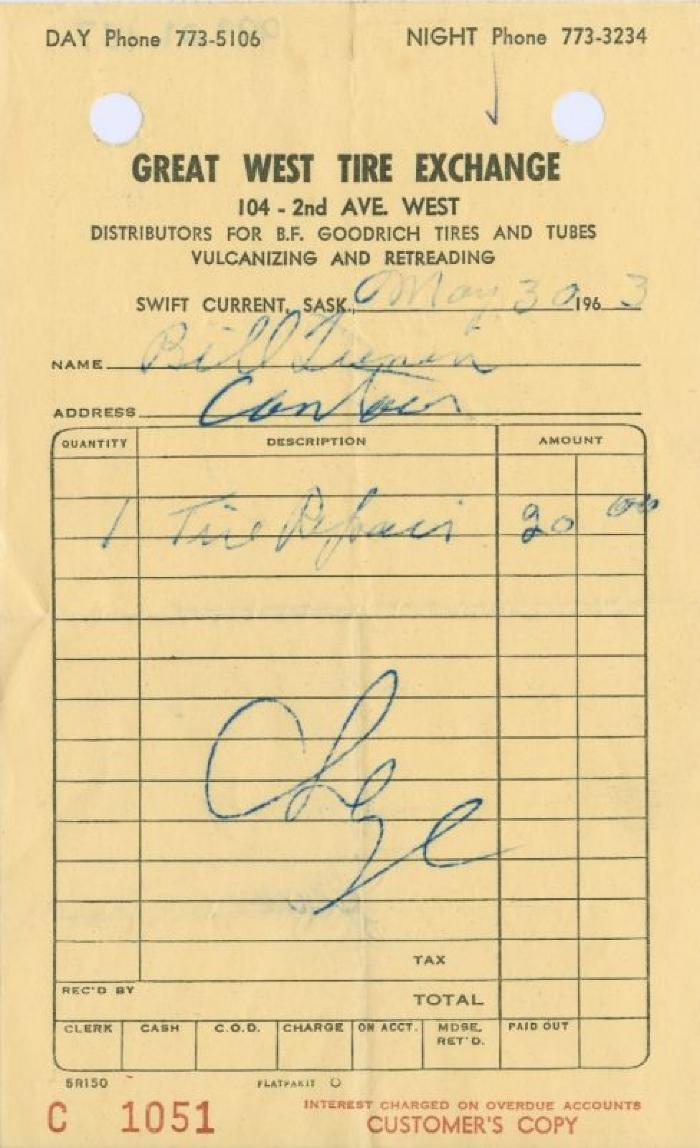 DAY Phone 773-5106 NIGHT Phone 773-3234
GREAT WEST TIRE EXCHANGE
104 - 2nd AVE. WEST
DISTRIBUTORS FOR B.F. GOODRICH TIRES AND TUBES
VULCANIZING AND RETREADING
SWIFT CURRENT, SASK., May 30 1963
NAME Bill
ADDRESS
QUANTITY DESCRIPTION AMOUNT
1 Tire Repair 20 00
Chge
TAX
REC'D BY TOTAL
CLERK CASH C.O.D. CHARGE ON ACCT. MDSE. RET'D. PAID OUT
5R150 FLATPAKIT
C 1051 INTEREST CHARGED ON OVERDUE ACCOUNTS
CUSTOMER'S COPY